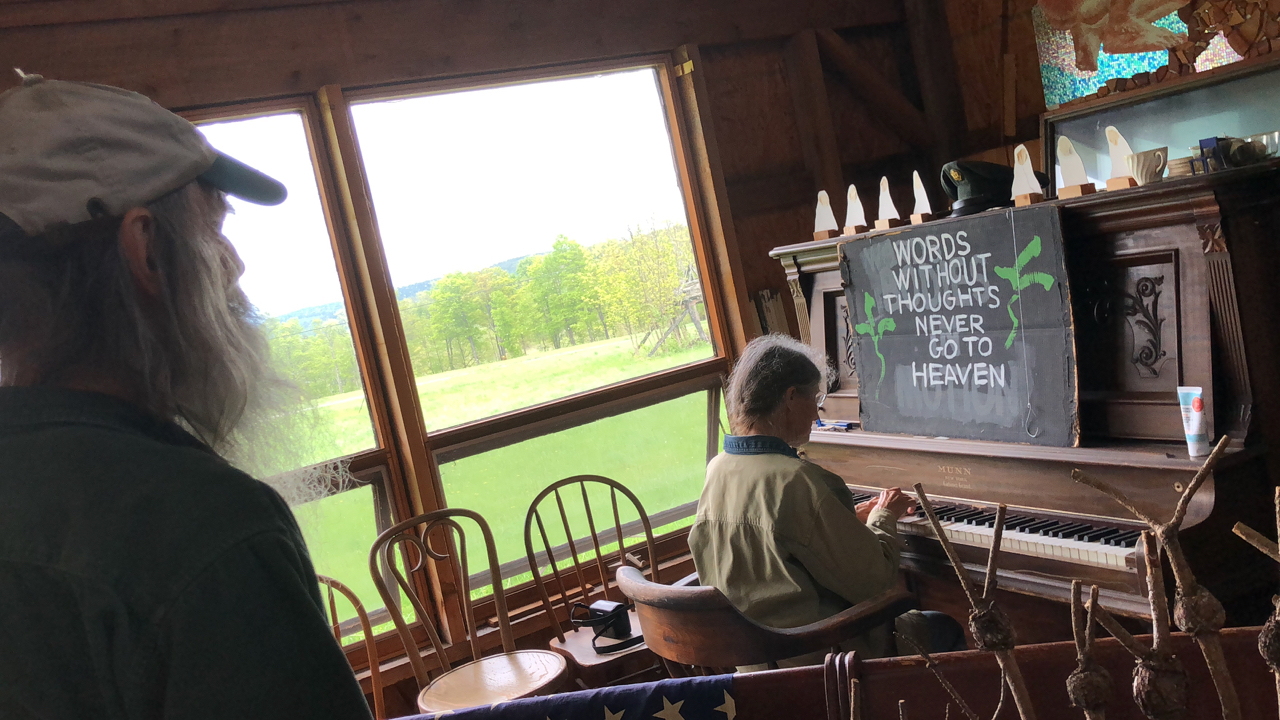 WORDS
WITHOUT
THOUGHTS
NEVER
GO TO
HEAVEN
MUNN